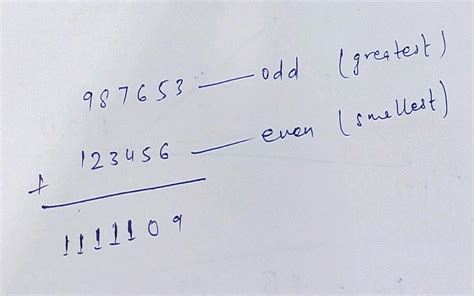 987653 — odd (greatest)
123456 — even (smallest)
+
1111109